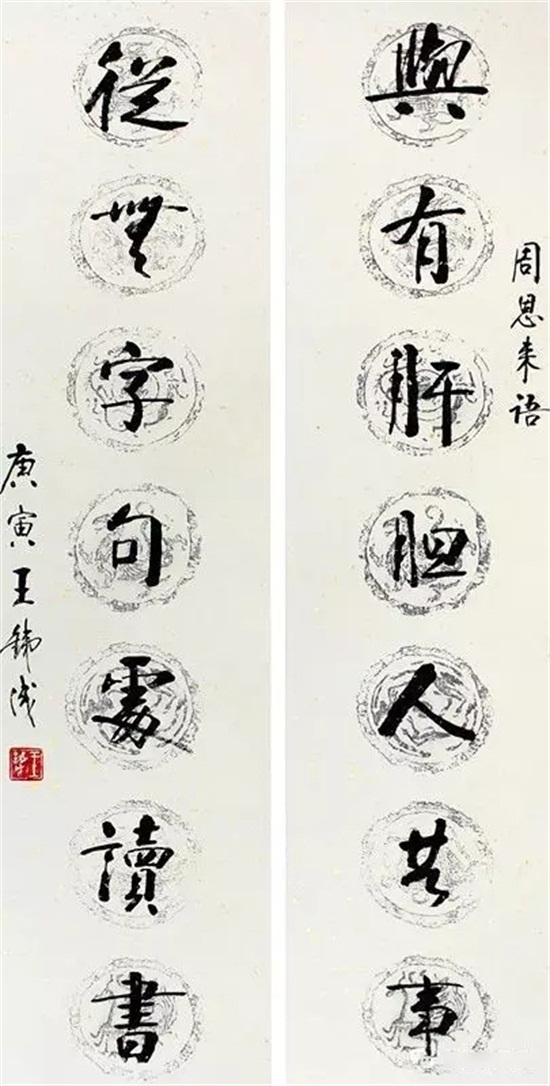 周恩来语
與有肝胆人共事
從無字句處讀書
庚寅王鏽成